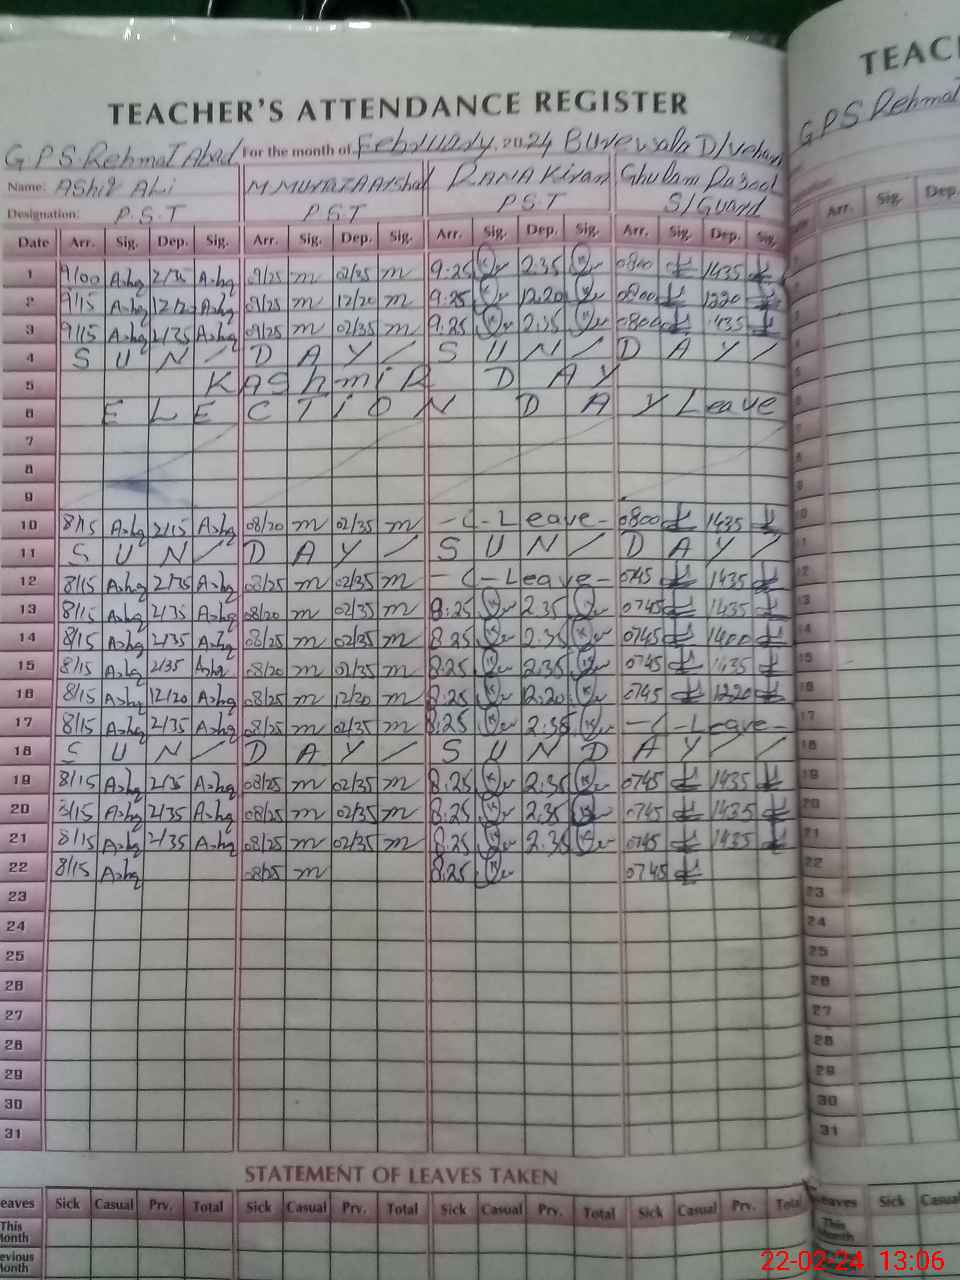 TEACHER'S ATTENDANCE REGISTER
TEAC
GPS Rehmat Abad For the month of February, 2024 Burewala D/vehari
GPS Rehmat
Name: AShiq Ali M.MurtazaArshad RANA Kiran Ghulam Rasool
Designation: P.S.T PST P.S.T S/Guard
Date Arr. Sig. Dep. Sig. Arr. Sig. Dep. Sig. Arr. Sig. Dep. Sig. Arr. Sig. Dep. Sig. Arr. Sig. Dep.
1 9/00 Ashq 2/35 Ashq 09/25 m 02/35 m 9:25 2.35 0800 1435
2 9/15 Ashq 12/20 Ashq 09/25 m 12/20 m 9:25 12.20 0800 1220
3 9/15 Ashq 2/35 Ashq 09/25 m 02/35 m 9.25 2:35 0800 1435
4 S U N / D A Y / S U N / D A Y /
5 KAShmiR DAY
6 ELECTiON DAY Leave
7
8
9
10 8/15 Ashq 2/15 Ashq 08/20 m 02/35 m - C - Leave - 0800 1435
11 S U N / D A Y / S U N / D A Y /
12 8/15 Ashq 2/35 Ashq 08/25 m 02/35 m - C - Leave - 0745 1435
13 8/15 Ashq 2/35 Ashq 08/20 m 02/35 m 8:25 2.35 0745 1435
14 8/15 Ashq 2/35 Ashq 08/25 m 02/35 m 8.25 2.35 0745 1400
15 8/15 Ashq 2/35 Ashq 08/20 m 02/35 m 8.25 2.35 0745 1435
16 8/15 Ashq 12/20 Ashq 08/25 m 12/20 m 8.25 12.20 0745 1220
17 8/15 Ashq 2/35 Ashq 08/25 m 02/35 m 8:25 2.35 - C - Leave -
18 S U N / D A Y / S U N D A Y / /
19 8/15 Ashq 2/35 Ashq 08/25 m 02/35 m 8.25 2.35 0745 1435
20 8/15 Ashq 2/35 Ashq 08/25 m 02/35 m 8.25 2.35 0745 1435
21 8/15 Ashq 2/35 Ashq 08/25 m 02/35 m 8.25 2.35 0745 1435
22 8/15 Ashq 08/25 m 8.25 0745
23
24
25
26
27
28
29
30
31
STATEMENT OF LEAVES TAKEN
eaves Sick Casual Prv. Total Sick Casual Prv. Total Sick Casual Prv. Total Sick Casual Prv. Total Leaves Sick Casual
This Month
evious Month
22-02-24 13:06